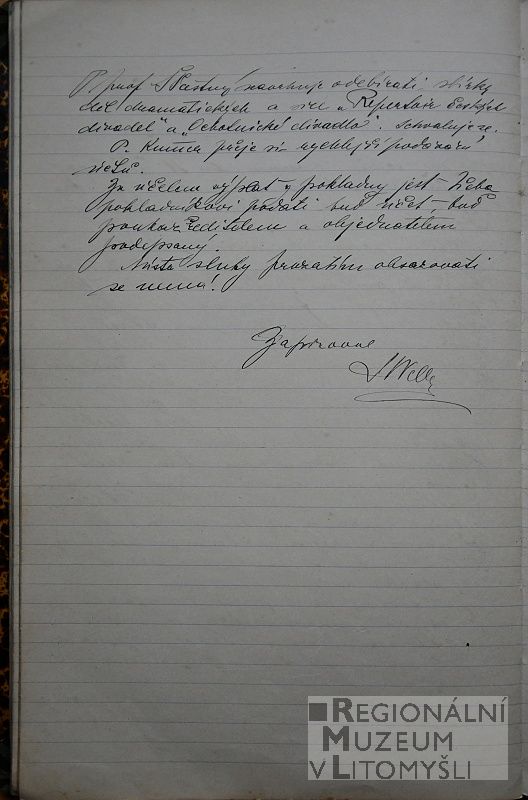 P. prof. Šťastný navrhuje odebírati sbírky
děl dramatických a sice „Repertoir českých
divadel“ a „Ochotnické divadlo“. Schvaluje se.
P. Kumca přeje si rychlejší podávání
Za účelem výplat z pokladny jest třeba
pokladníkovi podati buď účet – buď
poukaz ředitelem a objednatelem
podepsaný.
Místo sluhy prozatím obsazovati
se nemá!
Zapisovce
REGIONÁLNÍ
MUZEUM
V LITOMYŠLI